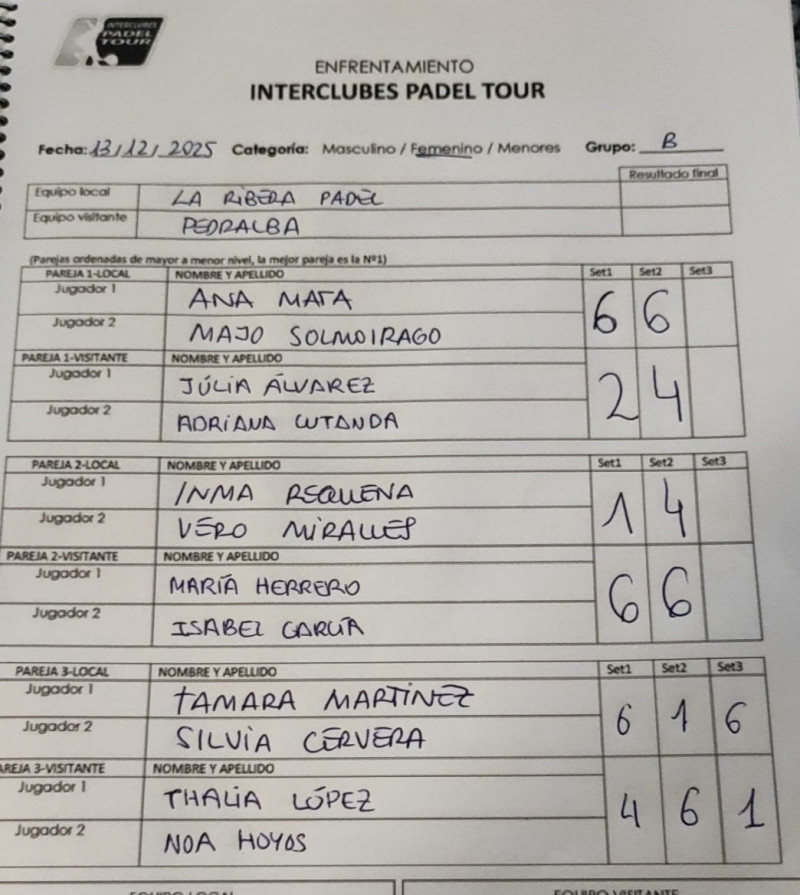 INTERCLUBES
PADEL
TOUR
ENFRENTAMIENTO
INTERCLUBES PADEL TOUR
Fecha: 13/12/2025 Categoría: Masculino / Femenino / Menores Grupo: B
Resultado final
Equipo local LA RIBERA PADEL
Equipo visitante PEDRALBA
(Parejas ordenadas de mayor a menor nivel, la mejor pareja es la Nº1)
PAREJA 1-LOCAL NOMBRE Y APELLIDO Set1 Set2 Set3
Jugador 1 ANA MATA
Jugador 2 MAJO SOLMOIRAGO 6 6
PAREJA 1-VISITANTE NOMBRE Y APELLIDO
Jugador 1 JÚLIA ÁLVAREZ
Jugador 2 ADRIANA CUTANDA 2 4
PAREJA 2-LOCAL NOMBRE Y APELLIDO Set1 Set2 Set3
Jugador 1 INMA REQUENA
Jugador 2 VERO MIRALLES 1 4
PAREJA 2-VISITANTE NOMBRE Y APELLIDO
Jugador 1 MARÍA HERRERO
Jugador 2 ISABEL GARCÍA 6 6
PAREJA 3-LOCAL NOMBRE Y APELLIDO Set1 Set2 Set3
Jugador 1 TAMARA MARTÍNEZ
Jugador 2 SILVIA CERVERA 6 1 6
AREJA 3-VISITANTE NOMBRE Y APELLIDO
Jugador 1 THALIA LÓPEZ
Jugador 2 NOA HOYOS 4 6 1
EQUIPO LOCAL EQUIPO VISITANTE